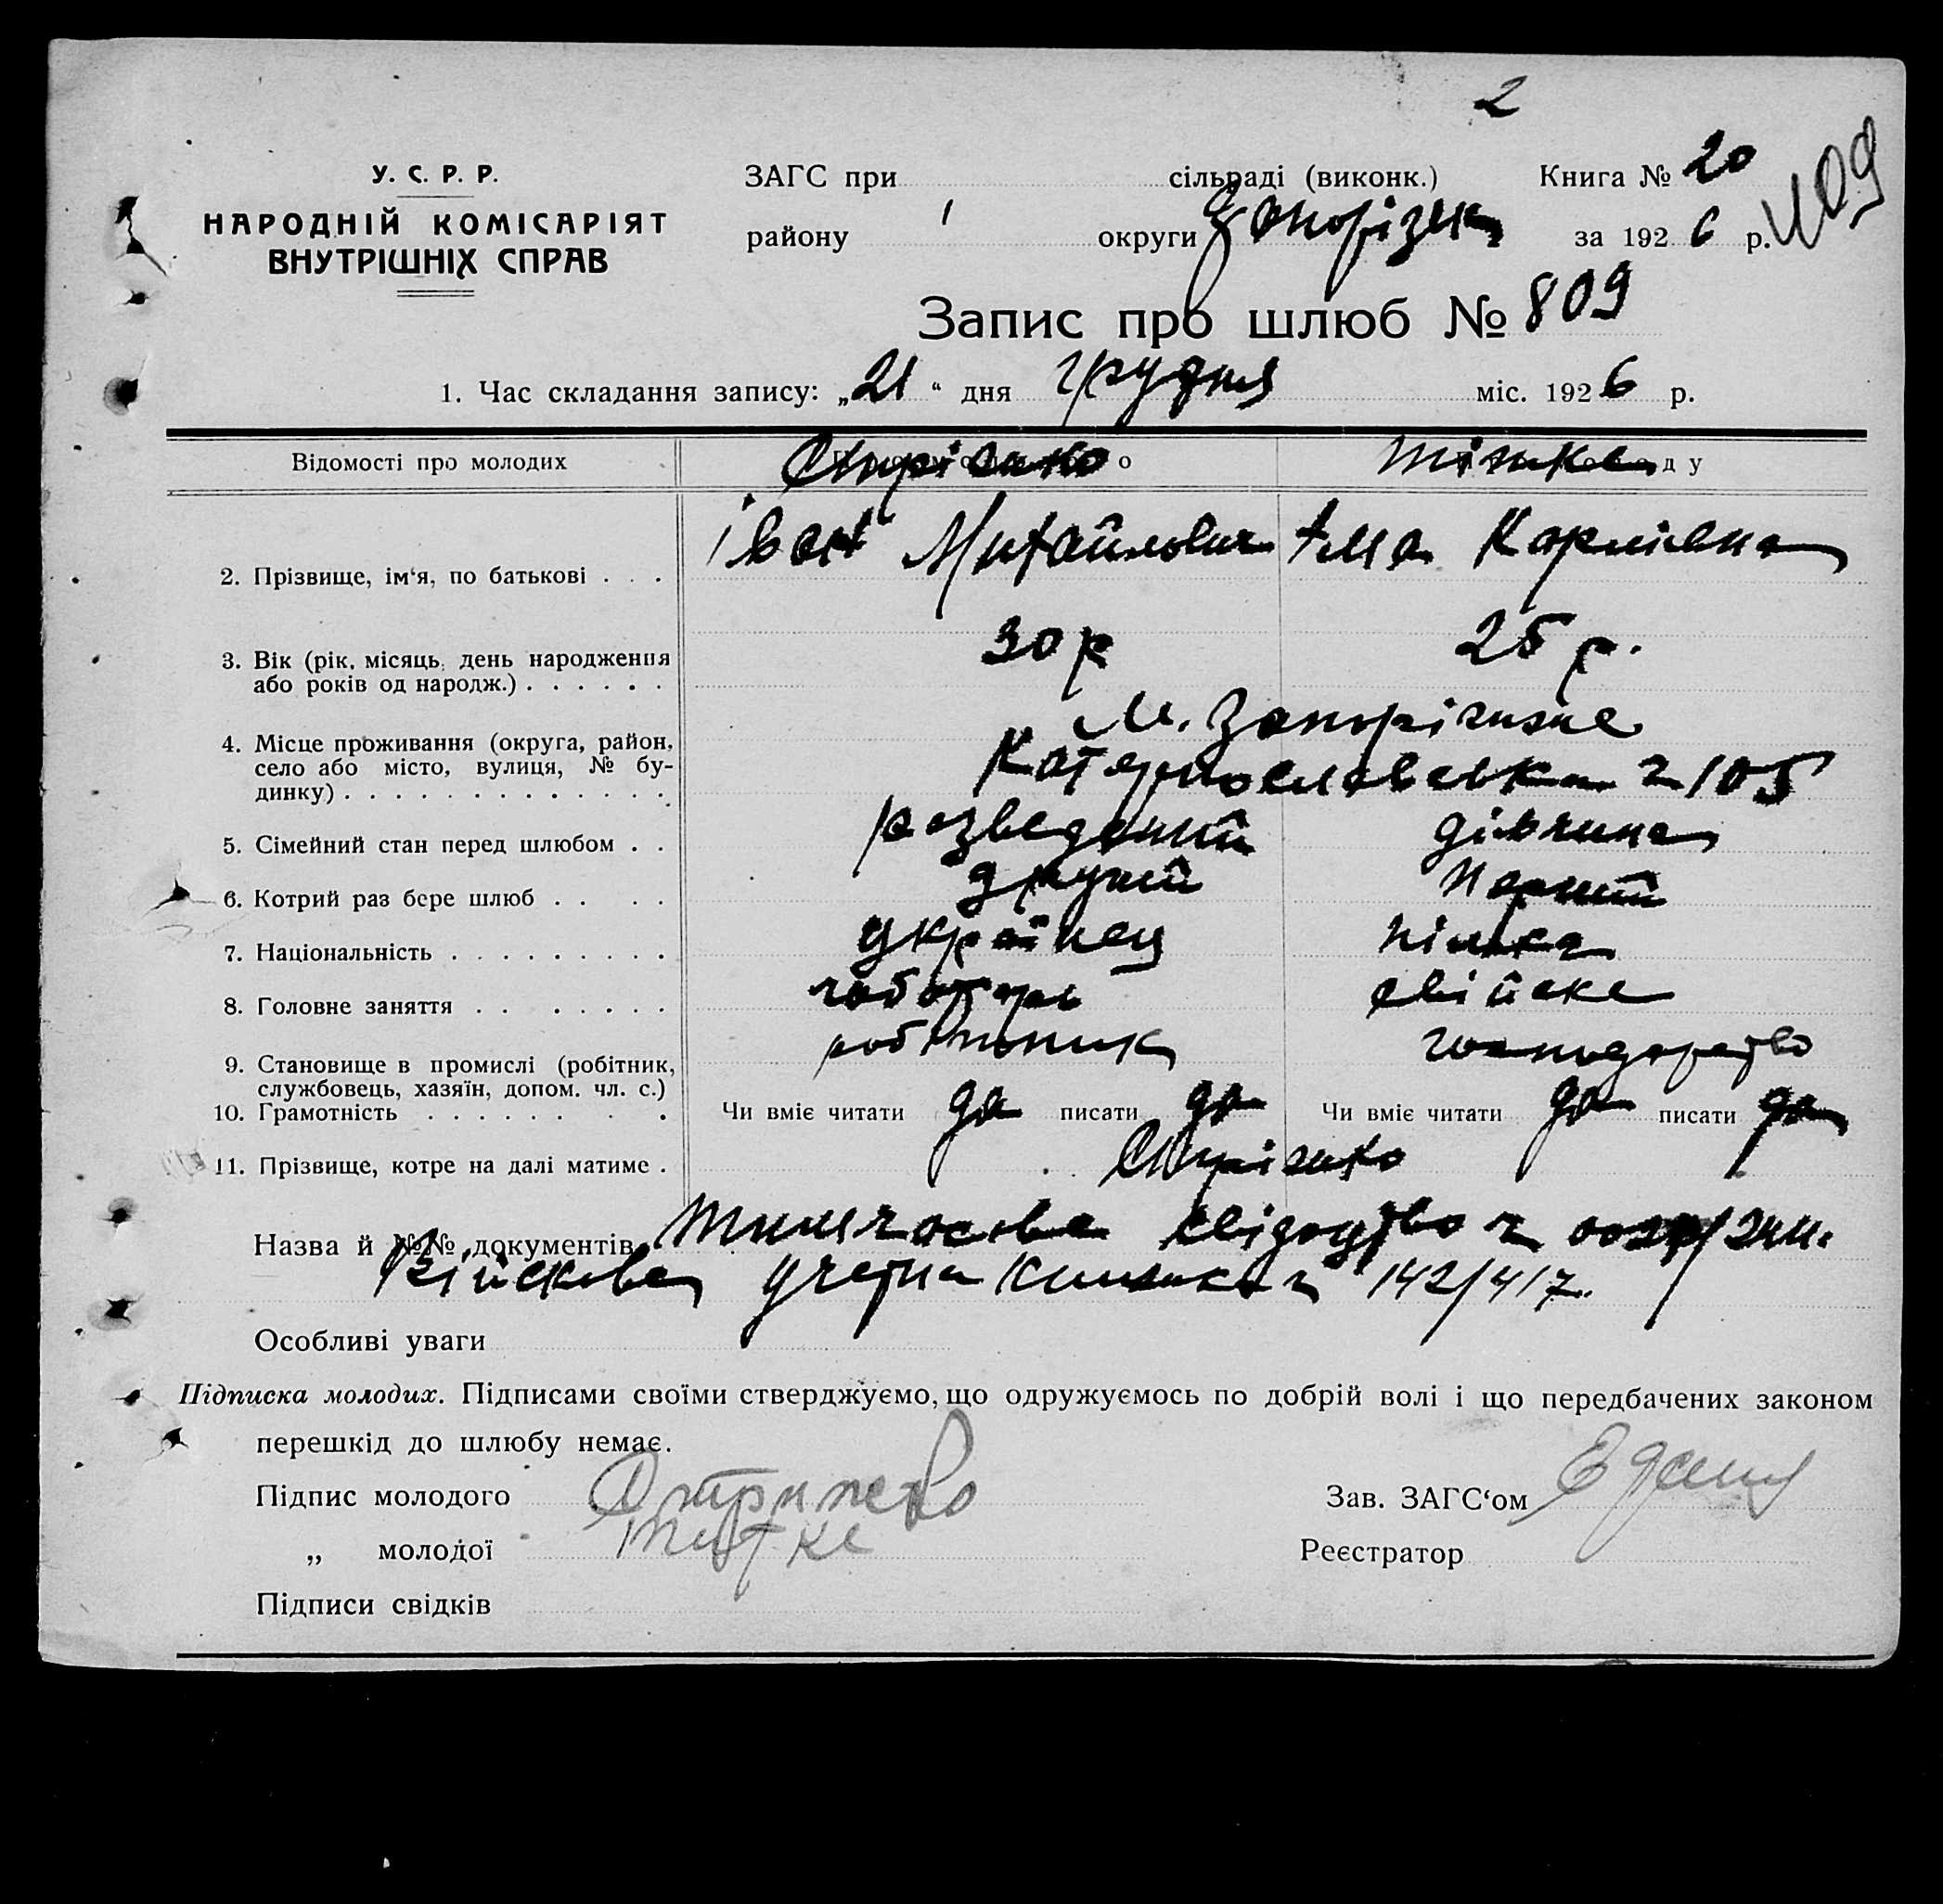 2
У. С. Р. Р.
НАРОДНІЙ КОМІСАРІЯТ
ВНУТРІШНІХ СПРАВ
ЗАГС при сільраді (виконк.) Книга № 20
району 1 округи Запорізьк за 1926 р.
809
Запис про шлюб № 809
1. Час складання запису: „21“ дня грудня міс. 1926 р.
Відомості про молодих
2. Прізвище, ім‘я, по батькові . . . Іван Михайлович Карлівна
3. Вік (рік, місяць, день народження
або років од народж.) . . . . . . 30 р 25 р.
4. Місце проживання (округа, район,
село або місто, вулиця, № бу-
динку) . . . . . . . . . . . . . .
м. Запоріжжє
Катеринославська 105
5. Сімейний стан перед шлюбом . . разведений дівчина
6. Котрий раз бере шлюб . . . . другий перший
7. Національність . . . . . . . . . українец
8. Головне заняття . . . . . . . чоботарь свійске
господарство
9. Становище в промислі (робітник,
службовець, хазяїн, допом. чл. с.) робітник
10. Грамотність . . . . . . . . Чи вміє читати да писати да Чи вміє читати да писати да
11. Прізвище, котре на далі матиме .
Назва й №№ документів Тимчасове свідоцтво
Війскова учетна книжка 142/417.
Особливі уваги
Підписка молодих. Підписами своїми стверджуємо, що одружуємось по добрій волі і що передбачених законом
перешкід до шлюбу немає.
Підпис молодого
Зав. ЗАГС‘ом
„ молодої
Реєстратор
Підписи свідків